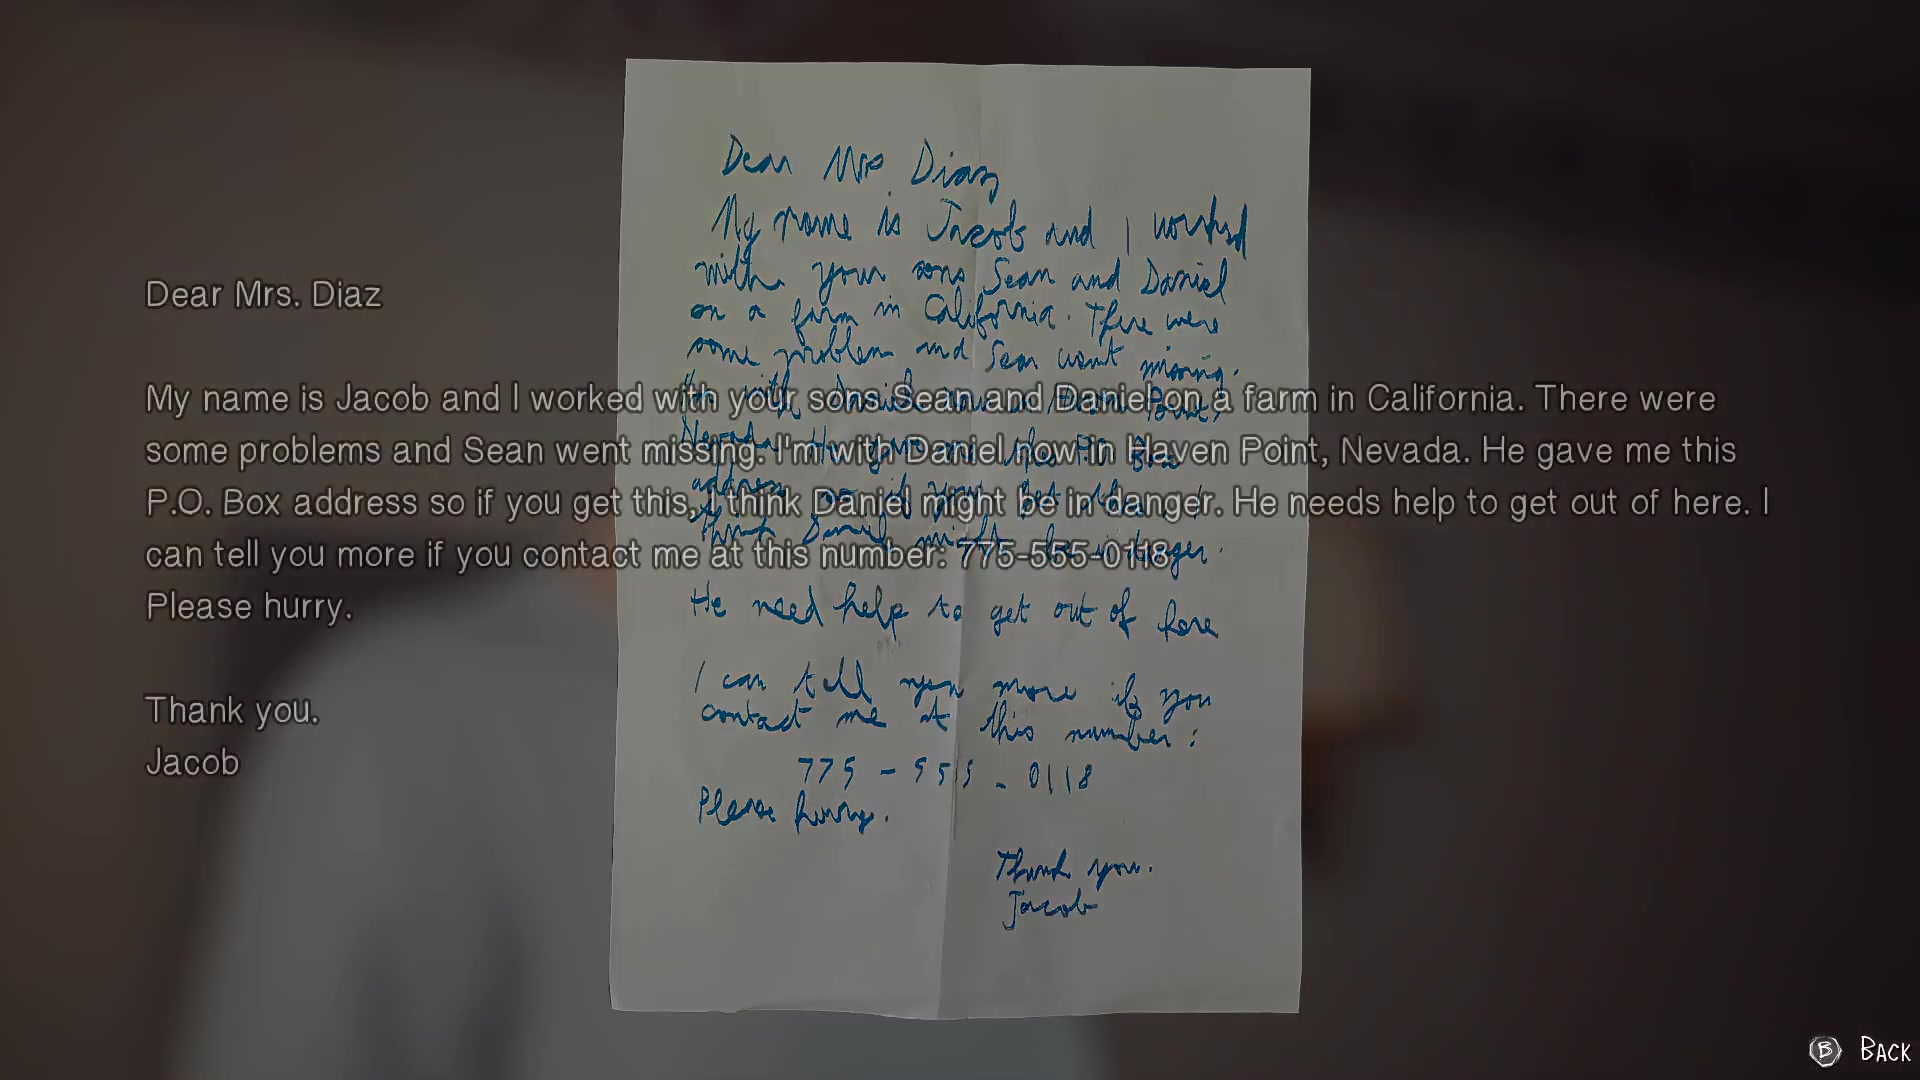 Dear Mrs. Diaz
My name is Jacob and I worked with your sons Sean and Daniel on a farm in California. There were
some problems and Sean went missing. I'm with Daniel now in Haven Point, Nevada. He gave me this
P.O. Box address so if you get this, I think Daniel might be in danger. He needs help to get out of here. I
can tell you more if you contact me at this number: 775-555-0118
Please hurry.
Thank you.
Jacob
Dear Mrs Diaz
My name is Jacob and I worked
with your sons Sean and Daniel
on a farm in California. There were
some problem and Sean went missing.
I'm with Daniel now in Haven Point,
Nevada. He gave me this P.O Box
address so if you get this I
think Daniel might be in danger.
He need help to get out of here
I can tell you more if you
contact me at this number:
775 - 555 - 0118
Please hurry.
Thank you.
Jacob
B BACK